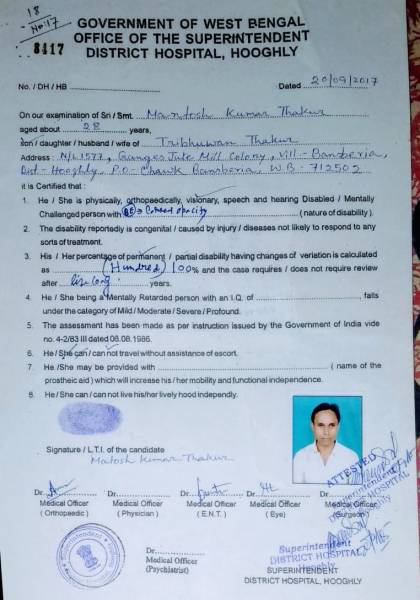 18
No: 17
8417
GOVERNMENT OF WEST BENGAL
OFFICE OF THE SUPERINTENDENT
DISTRICT HOSPITAL, HOOGHLY
No. / DH / HB
Dated 20/09/2017
On our examination of Sri / Smt. Mantosh Kumar Thakur
aged about 28 years,
son / daughter / husband / wife of Tribhuwan Thakur
Address : N/L 1577, Ganges Jute Mill Colony, Vill- Bansberia,
Dist- Hooghly, P.O- Chawk Bansberia, W.B - 712502
it is Certified that :
1. He / She is physically, orthopaedically, visionary, speech and hearing Disabled / Mentally
Challenged person with Corneal opacity ( nature of disability ).
2. The disability reportedly is congenital / caused by injury / diseases not likely to respond to any
sorts of treatment.
3. His / Her percentage of permanent / partial disability having changes of variation is calculated
as (Hundred) 100% and the case requires / does not require review
after life long years.
4. He / She being a Mentally Retarded person with an I.Q. of falls
under the category of Mild / Moderate / Severe / Profound.
5. The assessment has been made as per instruction issued by the Government of India vide
no. 4-2/83 III dated 06.08.1986.
6. He / She can / can not travel without assistance of escort.
7. He /She may be provided with ( name of the
prostheic aid ) which will increase his / her mobility and functional independence.
8. He / She can / can not live his/her lively hood independly.
Signature / L.T.I. of the candidate
Matosh Kumar Thakur
ATTESTED
Superintendent
DISTRICT HOSPITAL
Hooghly
Dr. Dr. Dr. Dr. Dr.
Medical Officer Medical Officer Medical Officer Medical Officer Medical Officer
( Orthopaedic ) ( Physician ) ( E.N.T. ) ( Eye ) (Surgeon)
Dr.
Medical Officer
(Psychiatrist)
Superintendent
DISTRICT HOSPITAL
Hooghly
SUPERINTENDENT
DISTRICT HOSPITAL, HOOGHLY